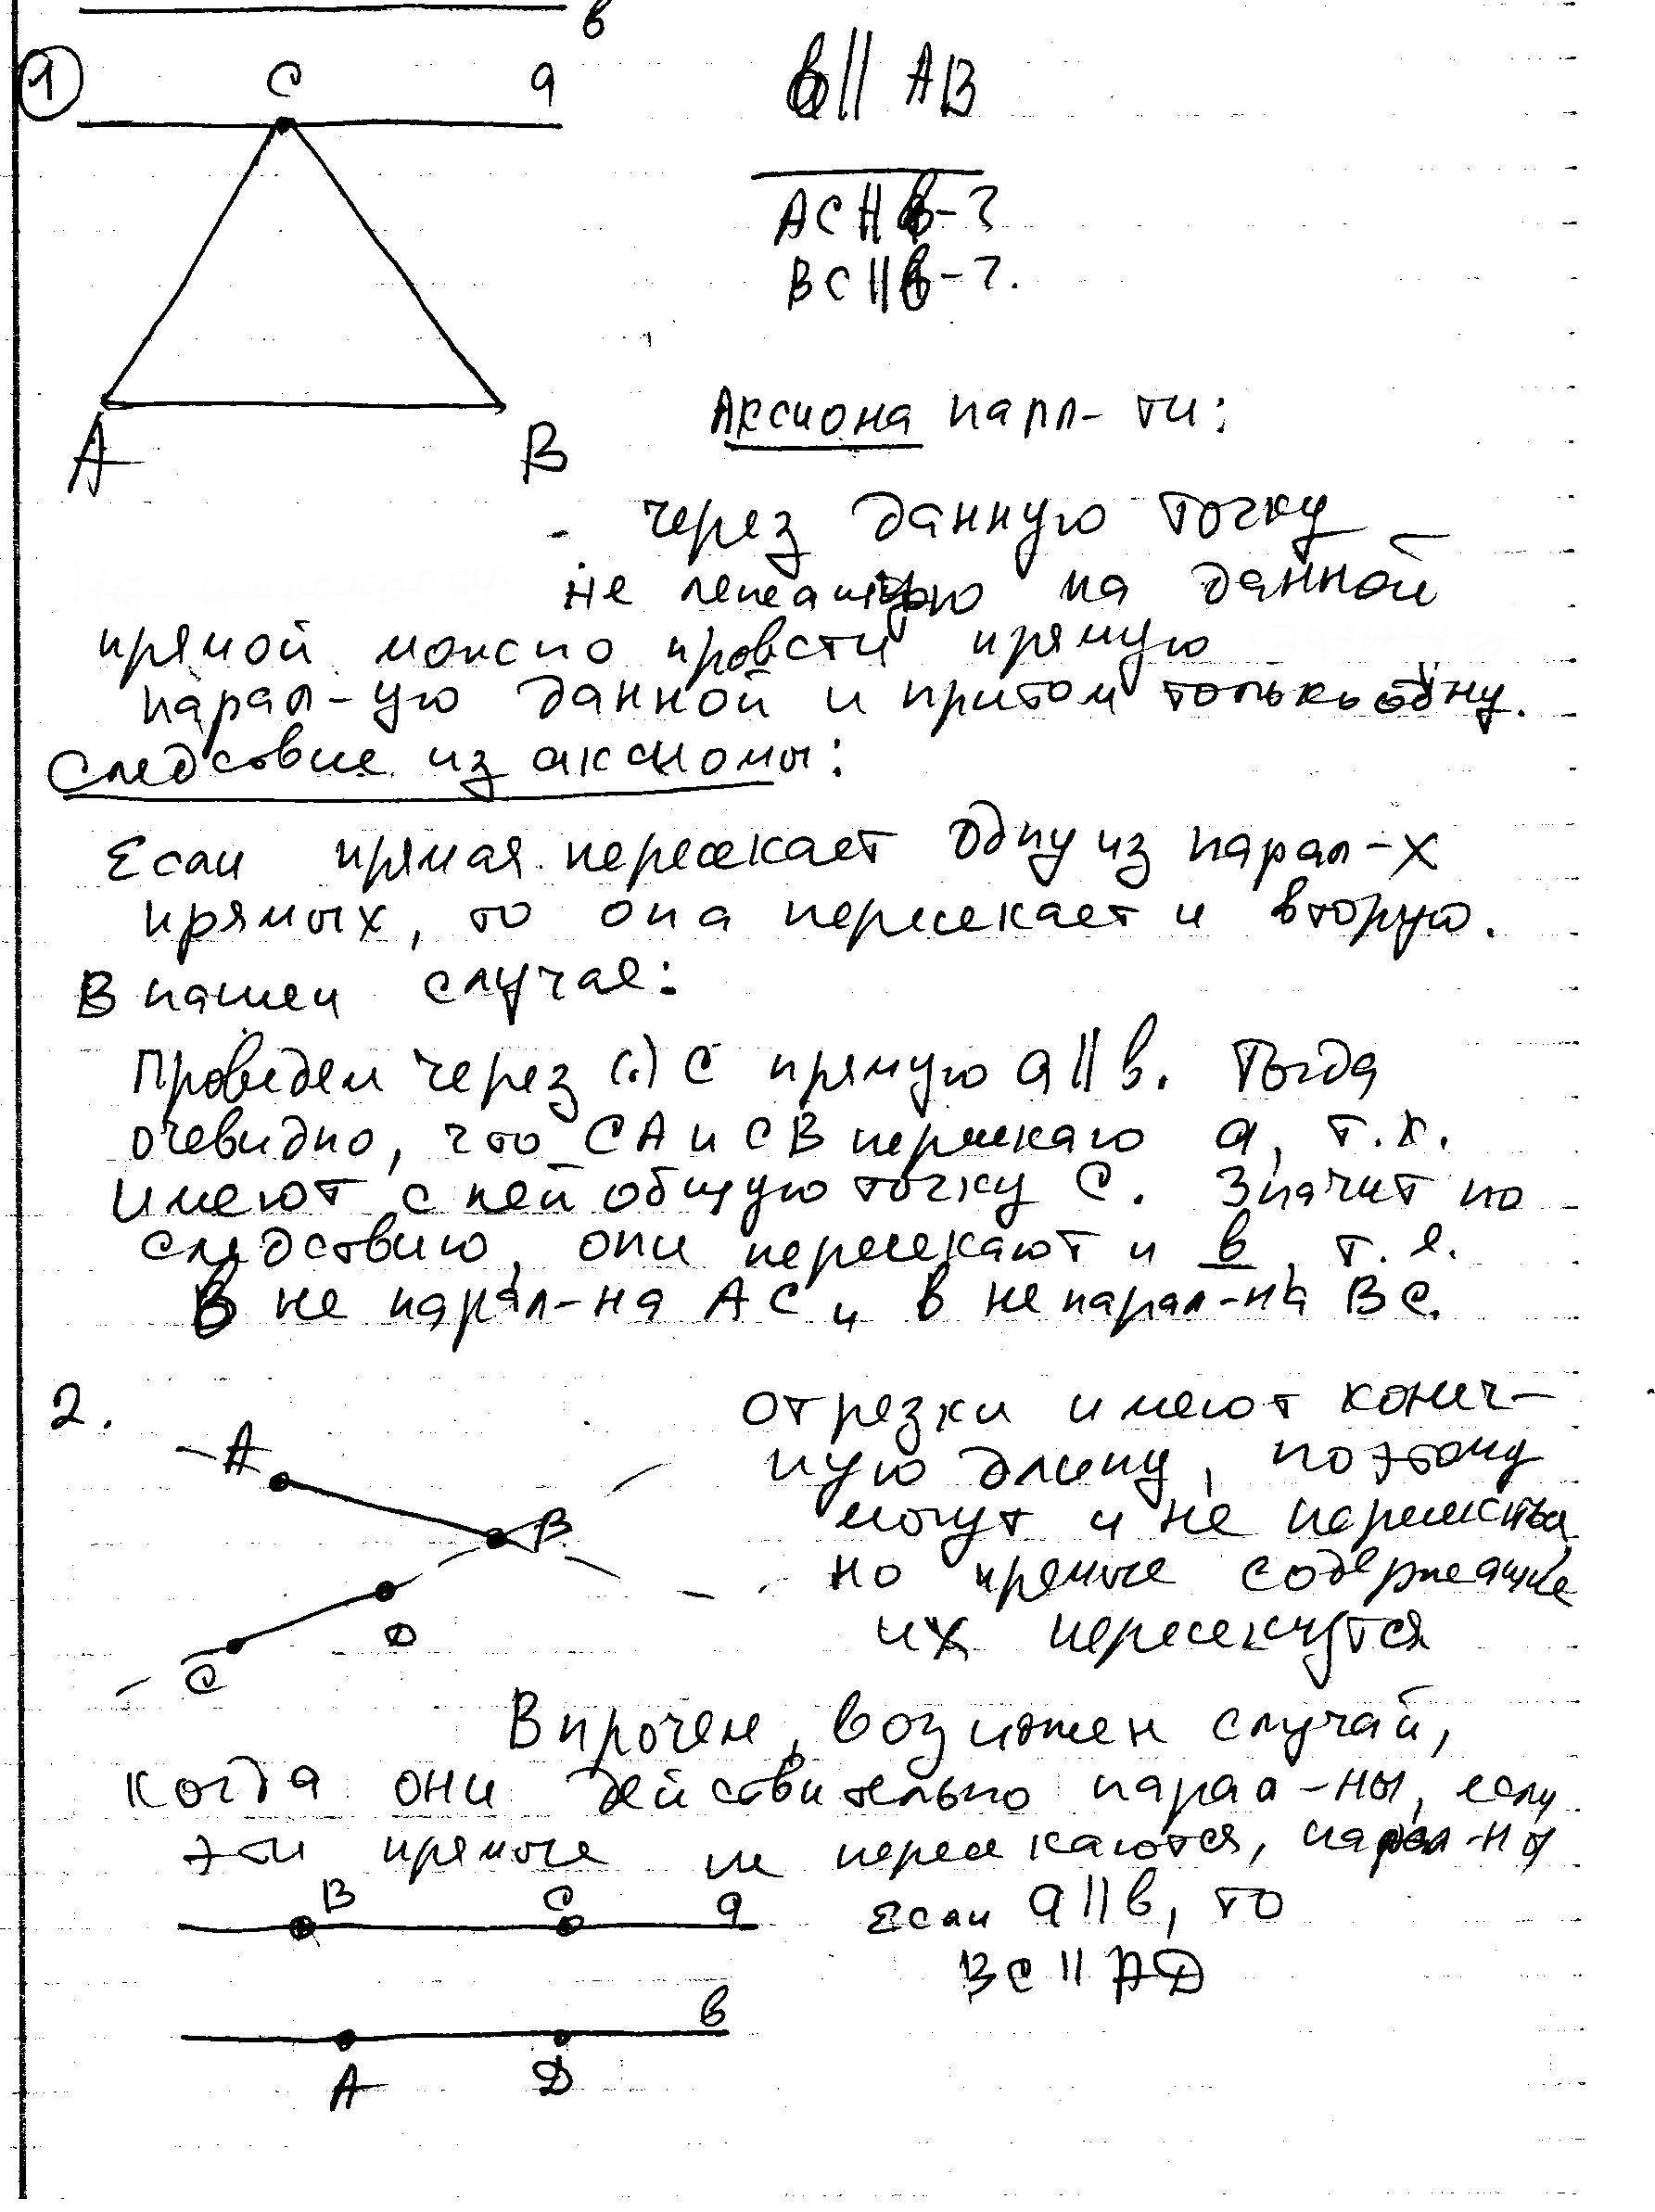 в
1 C a
в || AB
AC || в - ?
BC || в - ?.
A B
Аксиома парл-ти:
- через данную точку
не лежащую на данной
прямой можно провсти прямую
парал-ую данной и притом только одну.
Следствие из аксиомы:
Если прямая пересекает одну из парал-х
прямых, то она пересекает и вторую.
В нашем случае:
Проведем через (.) C прямую a || в. Тогда
очевидно, что CA и CB пересекаю a, т.к.
имеют с ней общую точку C. Значит по
следствию, они пересекают и в, т.е.
в не парал-на AC и в не парал-на BC.
2. отрезки имеют конеч-
A ную длину, поэтому
B могут и не пересекаться
D но прямые содержащие
C их пересекутся
Впрочем, возможен случай,
когда они действительно парал-ны, если
эти прямые не пересекаются, парал-ны
B C a Если a || в, то
BC || AD
в
A D